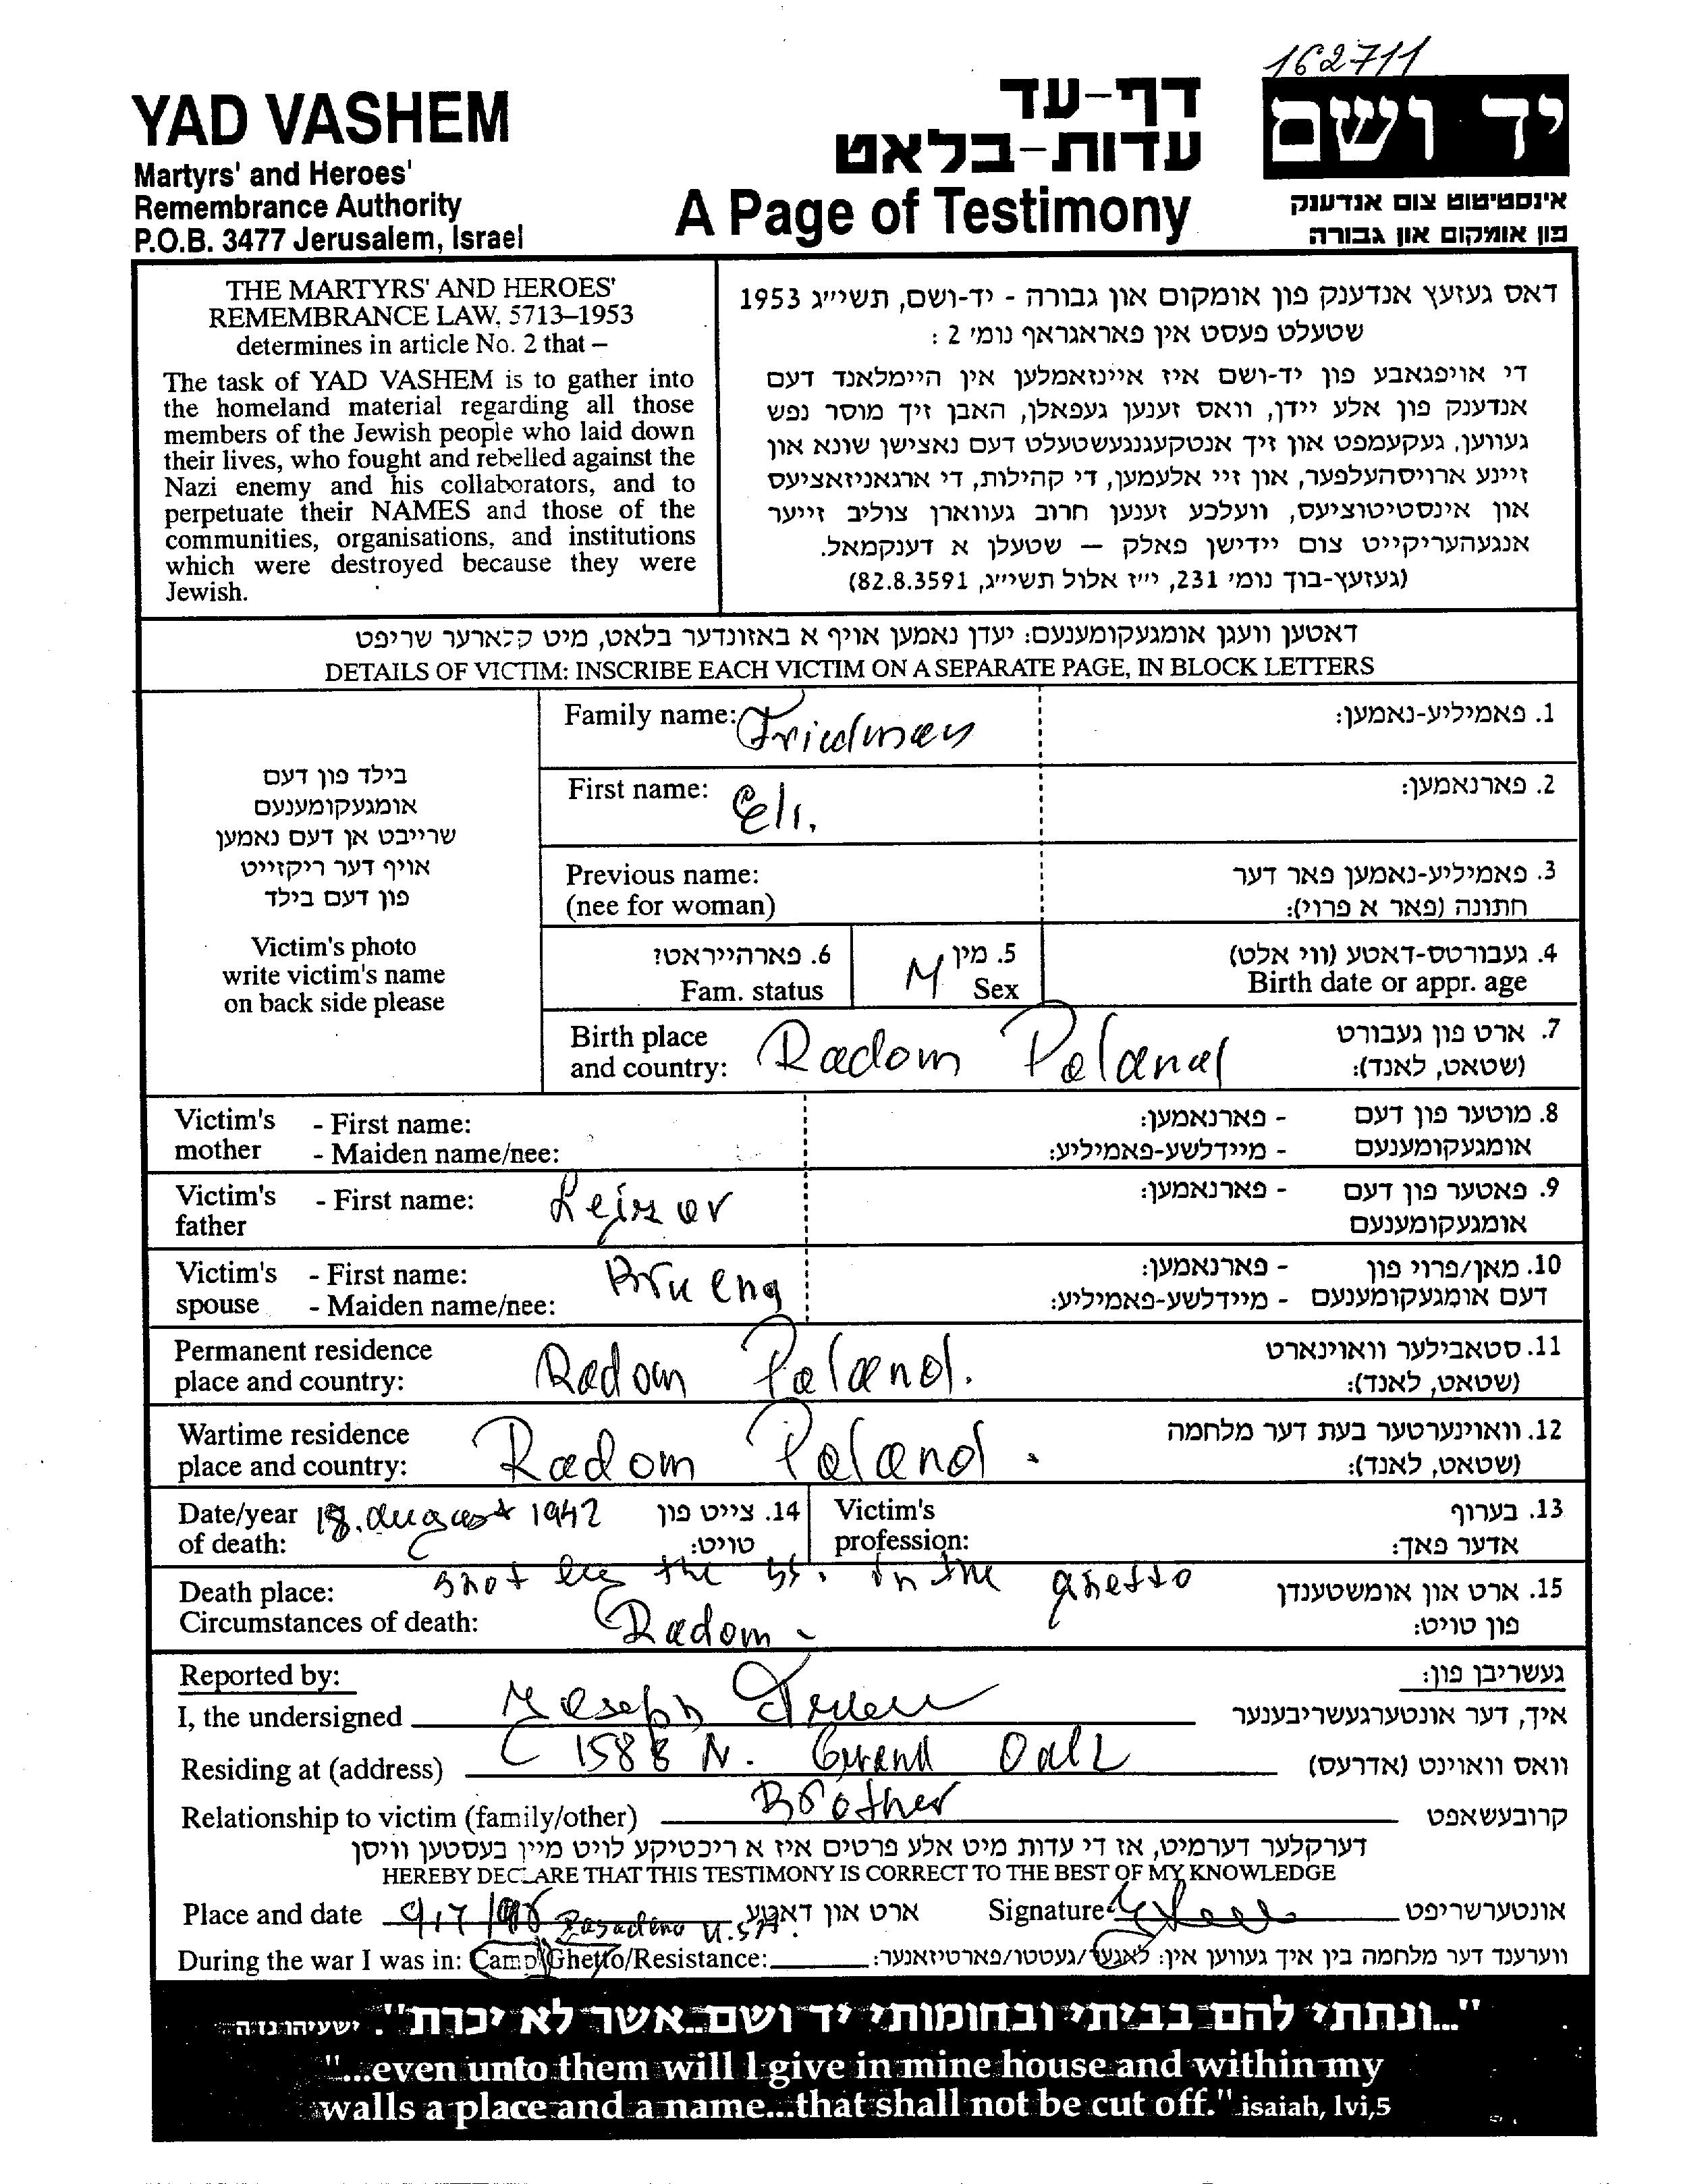 162711
YAD VASHEM
Martyrs' and Heroes'
Remembrance Authority
P.O.B. 3477 Jerusalem, Israel
דף-עד
עדות-בלאט
A Page of Testimony
יד ושם
אינסטיטוט צום אנדענק
פון אומקום און גבורה
THE MARTYRS' AND HEROES'
REMEMBRANCE LAW, 5713–1953
determines in article No. 2 that –
The task of YAD VASHEM is to gather into
the homeland material regarding all those
members of the Jewish people who laid down
their lives, who fought and rebelled against the
Nazi enemy and his collaborators, and to
perpetuate their NAMES and those of the
communities, organisations, and institutions
which were destroyed because they were
Jewish.
דאס געזעץ אנדענק פון אומקום און גבורה - יד-ושם, תשי״ג 1953
שטעלט פעסט אין פאראגראף נומ׳ 2 :
די אויפגאבע פון יד-ושם איז איינזאמלען אין היימלאנד דעם
אנדענק פון אלע יידן, וואס זענען געפאלן, האבן זיך מוסר נפש
געווען, געקעמפט און זיך אנטקעגנגעשטעלט דעם נאצישן שונא און
זיינע ארויסהעלפער, און זיי אלעמען, די קהילות, די ארגאניזאציעס
און אינסטיטוציעס, וועלכע זענען חרוב געווארן צוליב זייער
אנגעהעריקייט צום יידישן פאלק — שטעלן א דענקמאל.
(געזעץ-בוך נומ׳ 231, י״ז אלול תשי״ג, 82.8.3591)
דאטען וועגן אומגעקומענעם: יעדן נאמען אויף א באזונדער בלאט, מיט קלארער שריפט
DETAILS OF VICTIM: INSCRIBE EACH VICTIM ON A SEPARATE PAGE, IN BLOCK LETTERS
בילד פון דעם
אומגעקומענעם
שרייבט אן דעם נאמען
אויף דער ריקזייט
פון דעם בילד
Victim's photo
write victim's name
on back side please
Family name: Friedman 1. פאמיליע-נאמען:
First name: Eli. 2. פארנאמען:
Previous name:
(nee for woman)
3. פאמיליע-נאמען פאר דער
חתונה (פאר א פרוי):
6. פארהייראט?
Fam. status
5. מין
M Sex
4. געבורטס-דאטע (ווי אלט)
Birth date or appr. age
Birth place
and country: Radom Poland
7. ארט פון געבורט
(שטאט, לאנד):
Victim's mother - First name:
- Maiden name/nee:
8. מוטער פון דעם אומגעקומענעם - פארנאמען:
- מיידלשע-פאמיליע:
Victim's father - First name: Leizer
9. פאטער פון דעם אומגעקומענעם - פארנאמען:
Victim's spouse - First name:
- Maiden name/nee:
10. מאן/פרוי פון דעם אומגעקומענעם - פארנאמען:
- מיידלשע-פאמיליע:
Permanent residence
place and country: Radom Poland.
11. סטאבילער וואוינארט
(שטאט, לאנד):
Wartime residence
place and country: Radom Poland.
12. וואוינערטער בעת דער מלחמה
(שטאט, לאנד):
Date/year
of death: 18. august 1942
14. צייט פון
טויט:
Victim's
profession:
13. בערוף
אדער פאך:
Death place:
Circumstances of death:
shot by the SS. in the ghetto
Radom -
15. ארט און אומשטענדן
פון טויט:
Reported by:
געשריבן פון:
I, the undersigned Joseph איך, דער אונטערגעשריבענער
Residing at (address) 1588 N. Grand Oaks וואס וואוינט (אדרעס)
Relationship to victim (family/other) Brother קרובעשאפט
דערקלער דערמיט, אז די עדות מיט אלע פרטים איז א ריכטיקע לויט מיין בעסטען וויסן
HEREBY DECLARE THAT THIS TESTIMONY IS CORRECT TO THE BEST OF MY KNOWLEDGE
Place and date Pasadena U.S.A. ארט און דאטע Signature אונטערשריפט
During the war I was in: Camp/Ghetto/Resistance: ווערענד דער מלחמה בין איך געווען אין: לאגער/געטטו/פארטיזאנער:
"...ונתתי להם בביתי ובחומותי יד ושם...אשר לא יכרת". ישעיהו נו ה
"...even unto them will I give in mine house and within my
walls a place and a name...that shall not be cut off." isaiah, lvi,5